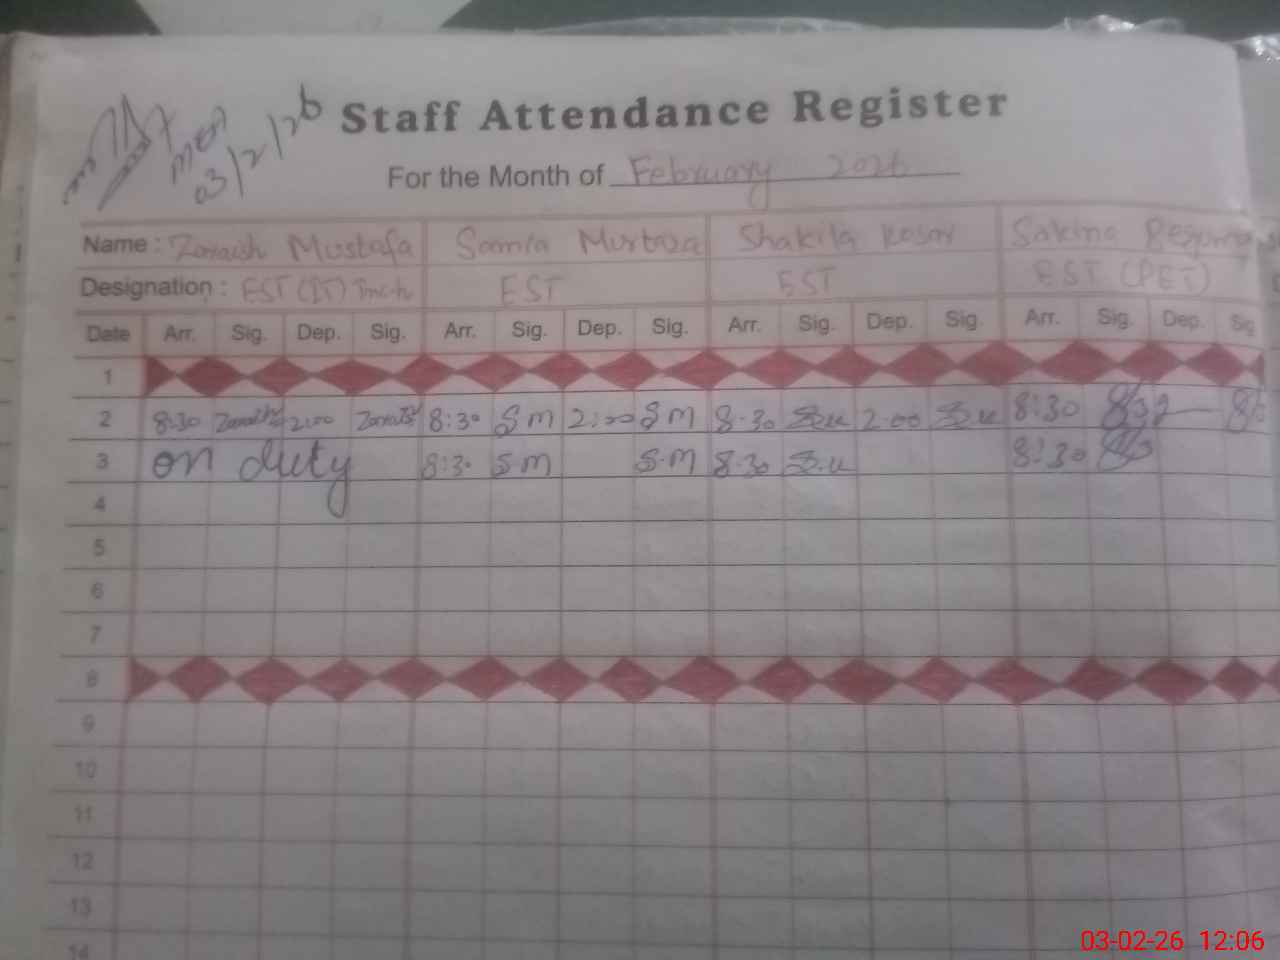 03/2/26
Staff Attendance Register
For the Month of February 2026
Name : Zonaish Mustafa Samra Murtaza Shakila Kosar Sakina
Designation : EST (IT) EST EST EST (PET)
Date Arr. Sig. Dep. Sig. Arr. Sig. Dep. Sig. Arr. Sig. Dep. Sig. Arr. Sig. Dep. Sig
1
2 8:30 2:00 8:30 S M 2:00 S M 8.30 2.00 8:30
3 on duty 8:30 S M S.M 8.30 8:30
4
5
6
7
8
9
10
11
12
13
14
03-02-26 12:06